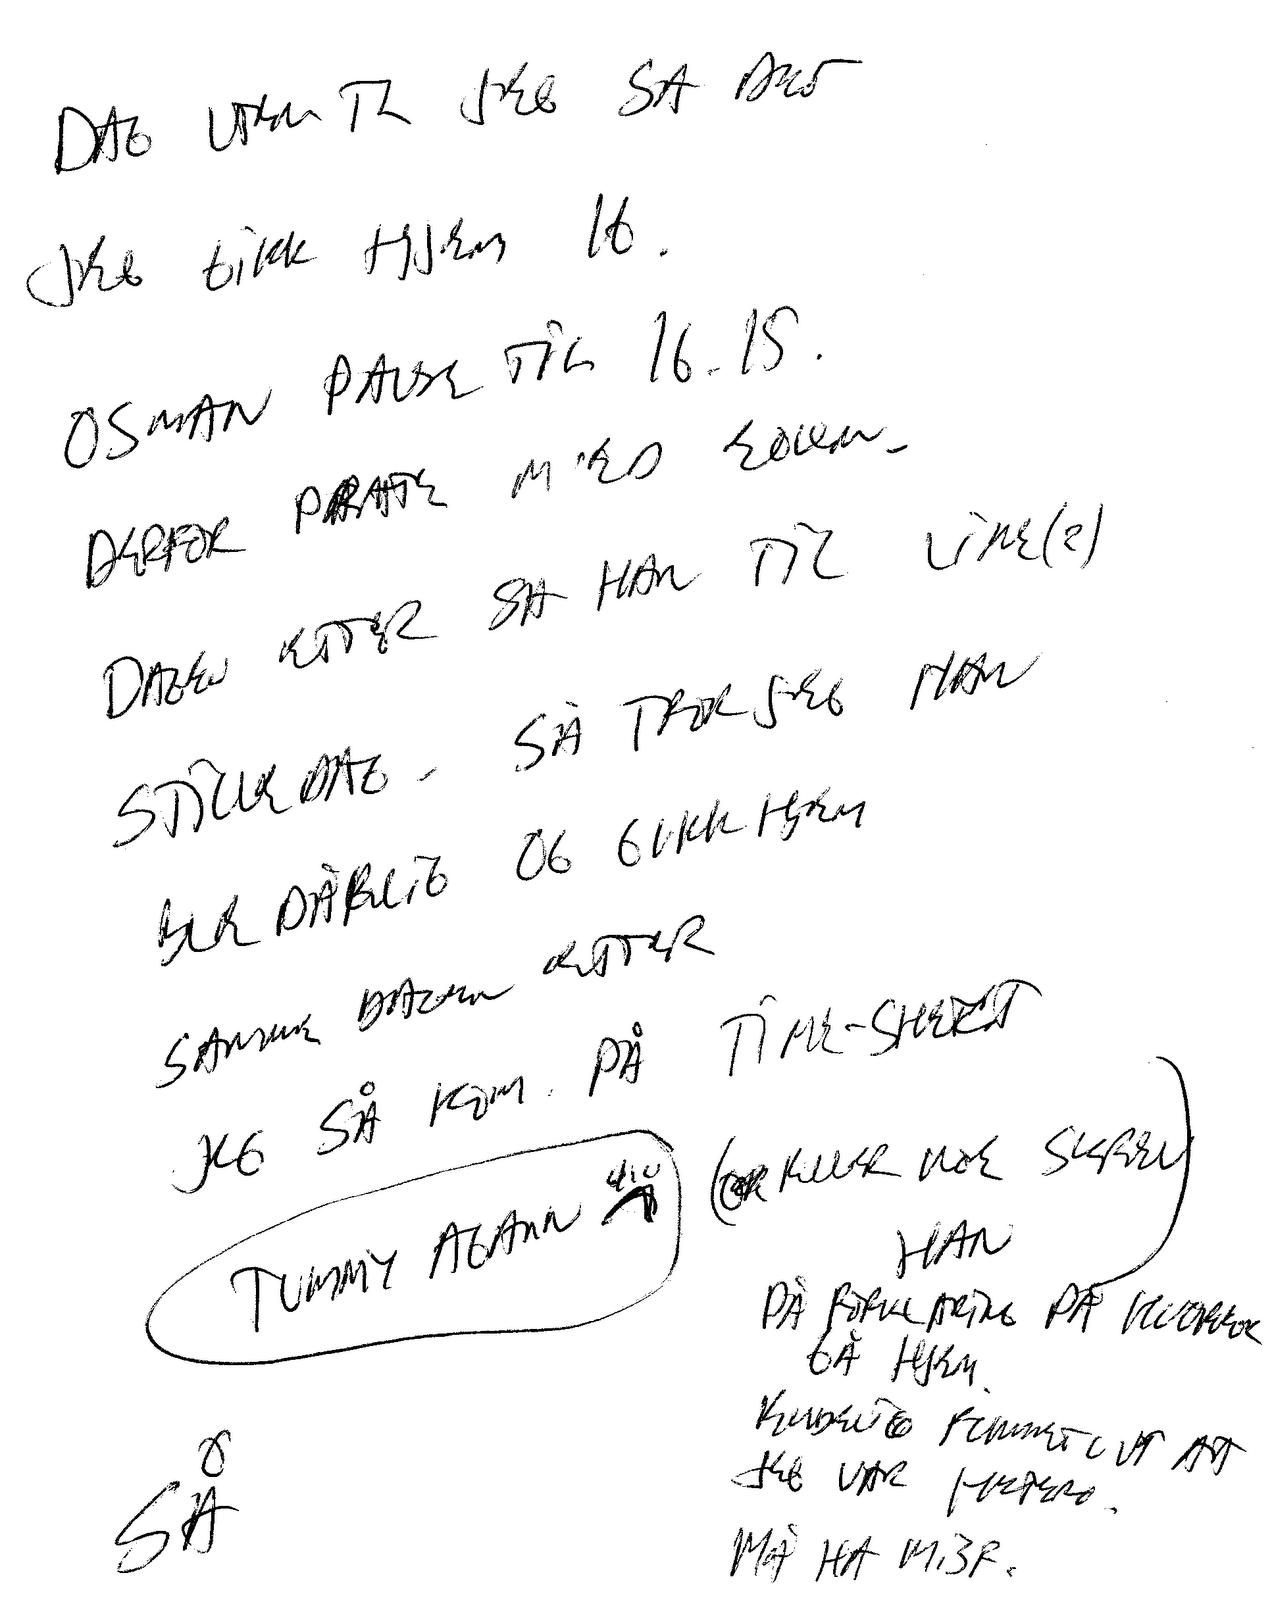 DAG UTEN TIL JEG SA DET
JEG GIKK HJEM 16.
OSMAN PAUSE TIL 16.15.
DERFOR PRATE MED
DAGEN ETTER SA HAN TIL LINE(?)
STILLE DAG - SÅ TROR JEG HAN
BLE DÅRLIG OG GIKK HJEM
SAMME DAGEN ETTER
JEG SÅ KOM. PÅ TIME-SHEET
TUMMY AGAIN
(ELLER NOE SKREV
HAN
PÅ FORKLARING PÅ HVORFOR
GÅ HJEM.
ENDELIG FUNNET UT AT
JEG VAR HETERO.
MÅ HA
SÅ